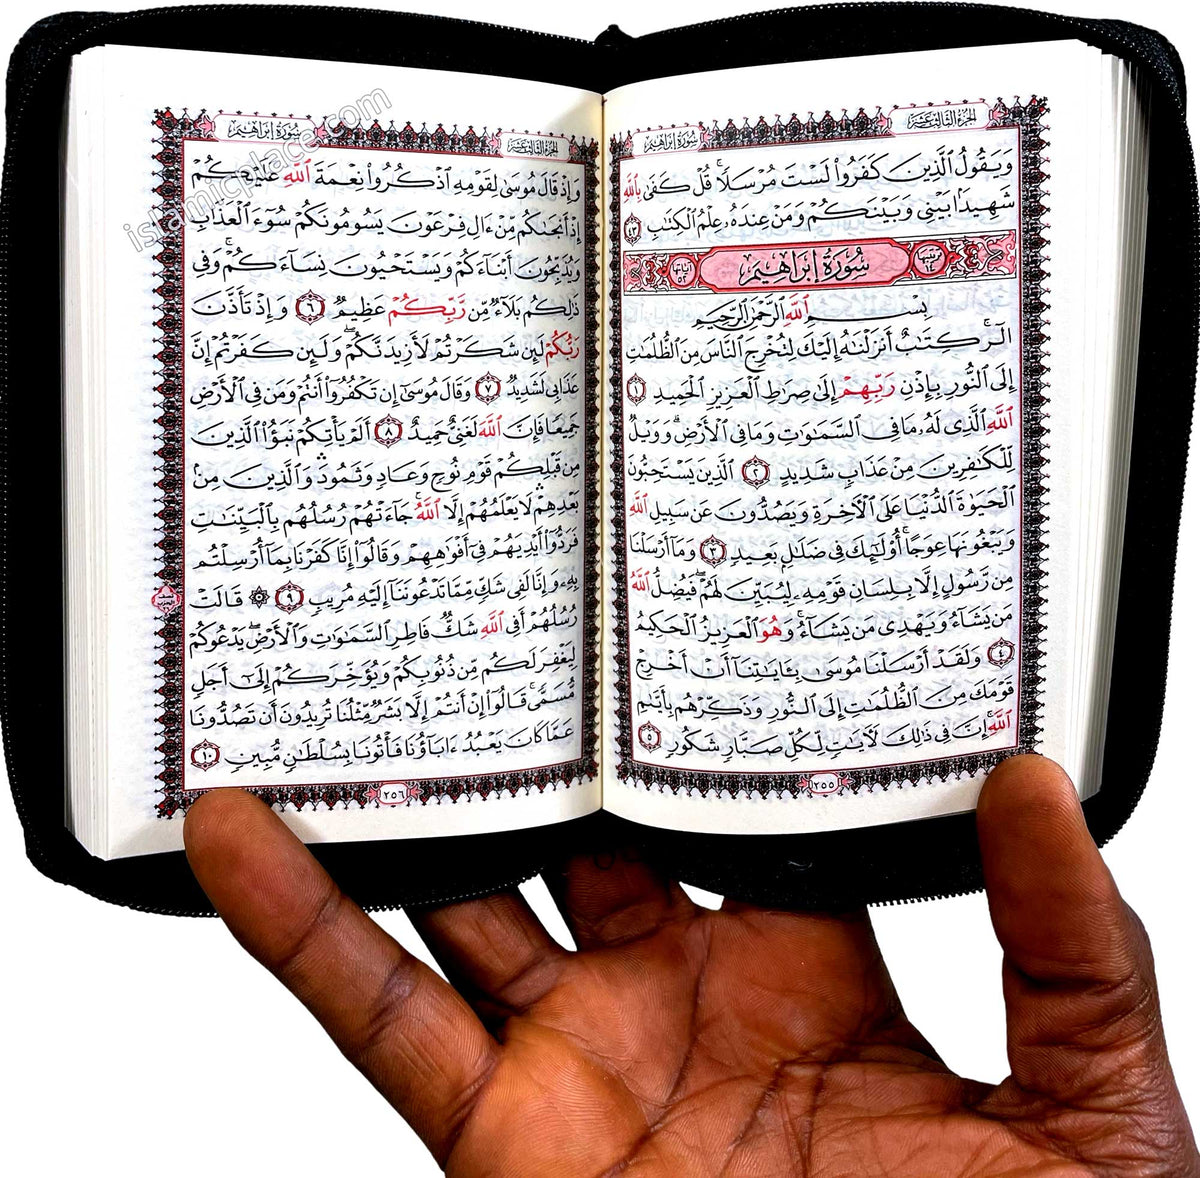 الجزء الثالث عشر
سورة إبراهيم
وَيَقُولُ ٱلَّذِينَ كَفَرُوا۟ لَسْتَ مُرْسَلًا ۚ قُلْ كَفَىٰ بِٱللَّهِ
شَهِيدًۢا بَيْنِى وَبَيْنَكُمْ وَمَنْ عِندَهُۥ عِلْمُ ٱلْكِتَٰبِ ٤٣
ترتيبها ١٤ سُورَةُ إِبْرَاهِيمَ آياتها ٥٢
بِسْمِ ٱللَّهِ ٱلرَّحْمَٰنِ ٱلرَّحِيمِ
الٓر ۚ كِتَٰبٌ أَنزَلْنَٰهُ إِلَيْكَ لِتُخْرِجَ ٱلنَّاسَ مِنَ ٱلظُّلُمَٰتِ
إِلَى ٱلنُّورِ بِإِذْنِ رَبِّهِمْ إِلَىٰ صِرَٰطِ ٱلْعَزِيزِ ٱلْحَمِيدِ ١
ٱللَّهِ ٱلَّذِى لَهُۥ مَا فِى ٱلسَّمَٰوَٰتِ وَمَا فِى ٱلْأَرْضِ ۗ وَوَيْلٌ
لِّلْكَٰفِرِينَ مِنْ عَذَابٍ شَدِيدٍ ٢ ٱلَّذِينَ يَسْتَحِبُّونَ
ٱلْحَيَوٰةَ ٱلدُّنْيَا عَلَى ٱلْءَاخِرَةِ وَيَصُدُّونَ عَن سَبِيلِ ٱللَّهِ
وَيَبْغُونَهَا عِوَجًا ۚ أُو۟لَٰٓئِكَ فِى ضَلَٰلٍۭ بَعِيدٍ ٣ وَمَآ أَرْسَلْنَا
مِن رَّسُولٍ إِلَّا بِلِسَانِ قَوْمِهِۦ لِيُبَيِّنَ لَهُمْ ۖ فَيُضِلُّ ٱللَّهُ
مَن يَشَآءُ وَيَهْدِى مَن يَشَآءُ ۚ وَهُوَ ٱلْعَزِيزُ ٱلْحَكِيمُ
٤ وَلَقَدْ أَرْسَلْنَا مُوسَىٰ بِـَٔايَٰتِنَآ أَنْ أَخْرِجْ
قَوْمَكَ مِنَ ٱلظُّلُمَٰتِ إِلَى ٱلنُّورِ وَذَكِّرْهُم بِأَيَّىٰمِ
ٱللَّهِ ۚ إِنَّ فِى ذَٰلِكَ لَءَايَٰتٍ لِّكُلِّ صَبَّارٍ شَكُورٍ ٥
٢٥٥
الجزء الثالث عشر
سورة إبراهيم
وَإِذْ قَالَ مُوسَىٰ لِقَوْمِهِ ٱذْكُرُوا۟ نِعْمَةَ ٱللَّهِ عَلَيْكُمْ
إِذْ أَنجَىٰكُم مِّنْ ءَالِ فِرْعَوْنَ يَسُومُونَكُمْ سُوٓءَ ٱلْعَذَابِ
وَيُذَبِّحُونَ أَبْنَآءَكُمْ وَيَسْتَحْيُونَ نِسَآءَكُمْ ۚ وَفِى
ذَٰلِكُم بَلَآءٌ مِّن رَّبِّكُمْ عَظِيمٌ ٦ وَإِذْ تَأَذَّنَ
رَبُّكُمْ لَئِن شَكَرْتُمْ لَأَزِيدَنَّكُمْ ۖ وَلَئِن كَفَرْتُمْ إِنَّ
عَذَابِى لَشَدِيدٌ ٧ وَقَالَ مُوسَىٰٓ إِن تَكْفُرُوٓا۟ أَنتُمْ وَمَن فِى ٱلْأَرْضِ
جَمِيعًا فَإِنَّ ٱللَّهَ لَغَنِىٌّ حَمِيدٌ ٨ أَلَمْ يَأْتِكُمْ نَبَؤُا۟ ٱلَّذِينَ
مِن قَبْلِكُمْ قَوْمِ نُوحٍ وَعَادٍ وَثَمُودَ ۛ وَٱلَّذِينَ مِنۢ
بَعْدِهِمْ ۛ لَا يَعْلَمُهُمْ إِلَّا ٱللَّهُ ۚ جَآءَتْهُمْ رُسُلُهُم بِٱلْبَيِّنَٰتِ
فَرَدُّوٓا۟ أَيْدِيَهُمْ فِىٓ أَفْوَٰهِهِمْ وَقَالُوٓا۟ إِنَّا كَفَرْنَا بِمَآ أُرْسِلْتُم
بِهِۦ وَإِنَّا لَفِى شَكٍّ مِّمَّا تَدْعُونَنَآ إِلَيْهِ مُرِيبٍ ٩ ۞ قَالَتْ
رُسُلُهُمْ أَفِى ٱللَّهِ شَكٌّ فَاطِرِ ٱلسَّمَٰوَٰتِ وَٱلْأَرْضِ ۖ يَدْعُوكُمْ
لِيَغْفِرَ لَكُم مِّن ذُنُوبِكُمْ وَيُؤَخِّرَكُمْ إِلَىٰٓ أَجَلٍ
مُّسَمًّى ۚ قَالُوٓا۟ إِنْ أَنتُمْ إِلَّا بَشَرٌ مِّثْلُنَا تُرِيدُونَ أَن تَصُدُّونَا
عَمَّا كَانَ يَعْبُدُ ءَابَآؤُنَا فَأْتُونَا بِسُلْطَٰنٍ مُّبِينٍ ١٠
نصف الحزب
٢٥٦
islamicplace.com